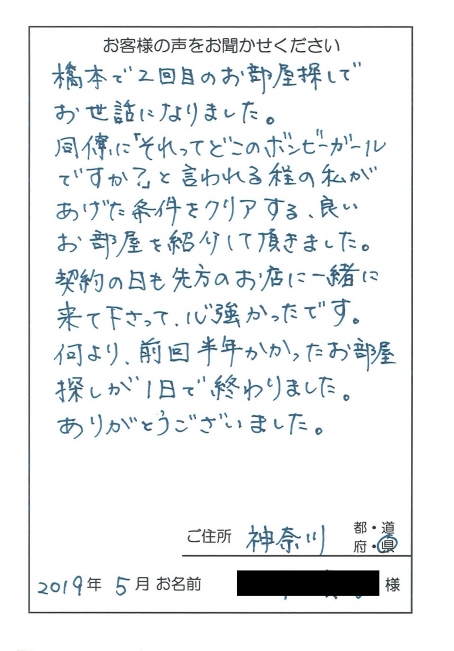 お客様の声をお聞かせください
橋本で2回目のお部屋探しで
お世話になりました。
同僚に「それってどこのボンビーガール
ですか?」と言われる程の私が
あげた条件をクリアする、良い
お部屋を紹介して頂きました。
契約の日も先方のお店に一緒に
来て下さって、心強かったです。
何より、前回半年かかったお部屋
探しが1日で終わりました。
ありがとうございました。
ご住所 神奈川 都・道
府・県
2019年 5月 お名前 様